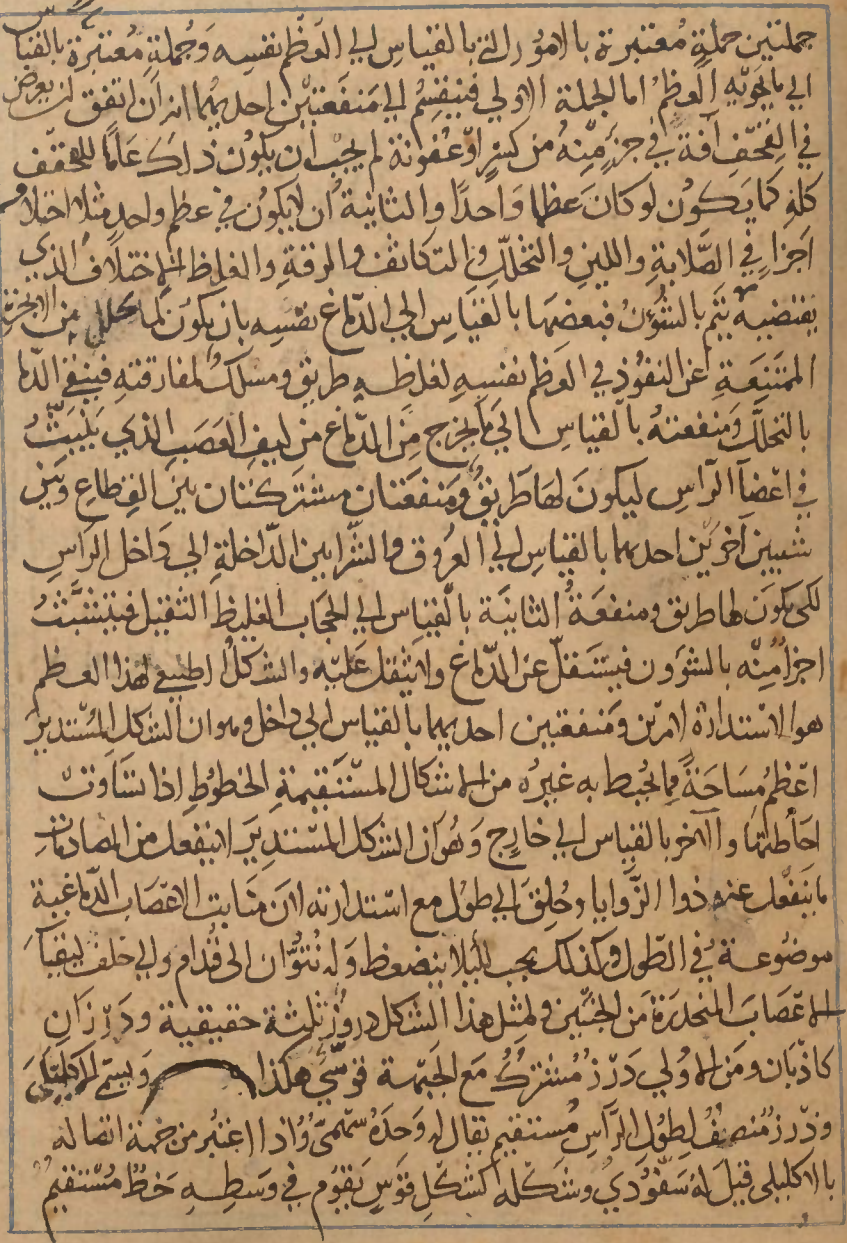 جملتين جملة معتبرة بالامور التي بالقياس الي العظم نفسه وجملة معتبرة بالقياس
الي ما يحويه العظم اما الجملة الاولي فينقسم الي منفعتين احديهما انه ان اتفق ان يعرض
في القحف آفة في جزء منه من كسر او عفونة لم يجب ان يكون ذلك عاما للقحف
كله كما يكون لو كان عظما واحدا والثانية ان لا يكون في عظم واحد مثلا اختلاف
اجزاء في الصلابة واللين والتخلل والتكاثف والرقة والغلظ الاختلاف الذي
يقتضيه تتم بالشؤن فبعضها بالقياس الي الدماغ نفسه بان يكون لما يتحلل من الابخرة
الممتنعة عن النفوذ في العظم نفسه لغلظه طريق ومسلك لمفارقته فينقي الدماغ
بالتحلل ومنفعته بالقياس الي ما يخرج من الدماغ من ليف العصب الذي ينبث
في اعضآ الرآس ليكون لها طريق ومنفعتان مشتركتان بين القطاع وبين
شيين آخرين احديهما بالقياس الي العروق والشرايين الداخلة الي داخل الراس
لكي يكون لها طريق ومنفعة الثانية بالقياس الي الحجاب الغليظ الثقيل فيتشبث
اجزا منه بالشؤون فيستقل عن الدماغ ولا يثقل عليه والشكل الطبيعي لهذا العظم
هو الاستدارة لامرين ومنفعتين احديهما بالقياس الي داخل وهو ان الشكل المستدير
اعظم مساحة مما يحيط به غيره من الاشكال المستقيمة الخطوط اذا تساوت
احاطتها والآخر بالقياس الي خارج وهو ان الشكل المستدير لا ينفعل من المصادمات
ما ينفعل عنه ذوا الزوايا وخلق الي طول مع استدارته لان منابت الاعصاب الدماغية
موضوعة في الطول وكذلك يجب لئلا ينضغط وله نتوان الى قدام والي خلف ليقيا
الاعصاب المنحدرة من الجنبين ولمثل هذا الشكل دروز ثلثة حقيقية ودرزان
كاذبان ومن الاولي درز مشترك مع الجبهة قوسي هكذا ويسمي الاكليلي
ودرز منصف لطول الراس مستقيم يقال له وحده سهمي واذا اعتبر من جهة اتصاله
بالاكليلي قيل له سفودي وشكله كشكل قوس يقوم في وسطه خط مستقيم